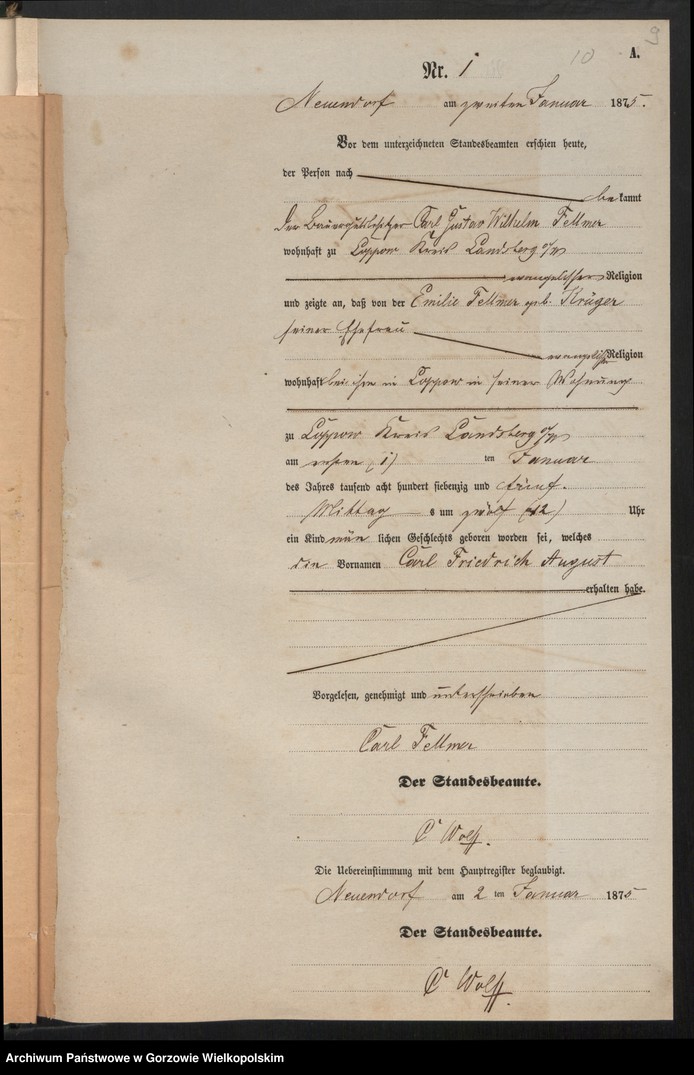 9
10
A.
Nr. 1
Neuendorf am zweiten Januar 1875.
Vor dem unterzeichneten Standesbeamten erschien heute,
der Person nach
bekannt
der Bauergutsbesitzer Carl Gustav Wilhelm Fellmer
wohnhaft zu Loppow Kreis Landsberg a/W
evangelischer Religion
und zeigte an, daß von der Emilie Fellmer geb. Krüger
seiner Ehefrau
evangelischer Religion
wohnhaft bei ihm in Loppow in seiner Wohnung
zu Loppow Kreis Landsberg a/W
am ersten (1) ten Januar
des Jahres tausend acht hundert siebenzig und fünf.
Mittags um zwölf (12) Uhr
ein Kind männlichen Geschlechts geboren worden sei, welches
die Vornamen Carl Friedrich August
erhalten habe.
Vorgelesen, genehmigt und unterschrieben
Carl Fellmer
Der Standesbeamte.
C Wolff.
Die Uebereinstimmung mit dem Hauptregister beglaubigt.
Neuendorf am 2 ten Januar 1875
Der Standesbeamte.
C Wolff.
Archiwum Państwowe w Gorzowie Wielkopolskim